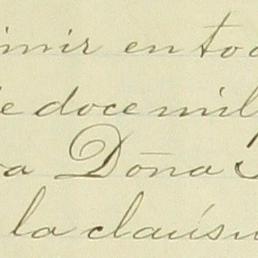 imir en to
e doce mil
a Doña
la claús